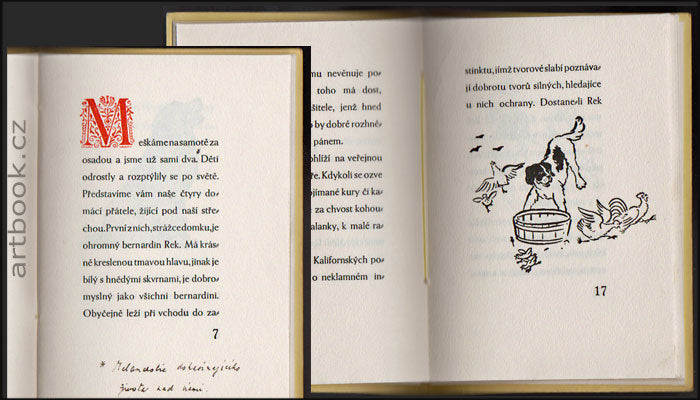 artbook.cz
Meškáme na samotě za
osadou a jsme už sami dva. Děti
odrostly a rozptýlily se po světě.
Představíme vám naše čtyry do-
mácí přátele, žijící pod naší stře-
chou. První z nich, strážce domku, je
ohromný bernardin Rek. Má krás-
ně kreslenou tmavou hlavu, jinak je
bílý s hnědými skvrnami, je dobro-
myslný jako všichni bernardini.
Obyčejně leží při vchodu do za-
7
mu nevěnuje po-
toho má dost,
šitele, jenž hned
o by dobré rozhně-
pánem.
ohlíží na veřejnou
ře. Kdykoli se ozve
ojímané kury či ka-
za chvost kohou-
alanky, k malé ra-
Kalifornských po-
o neklamném in-
stinktu, jímž tvorové slabí poznáva-
jí dobrotu tvorů silných, hledajíce
u nich ochrany. Dostane-li Rek
17